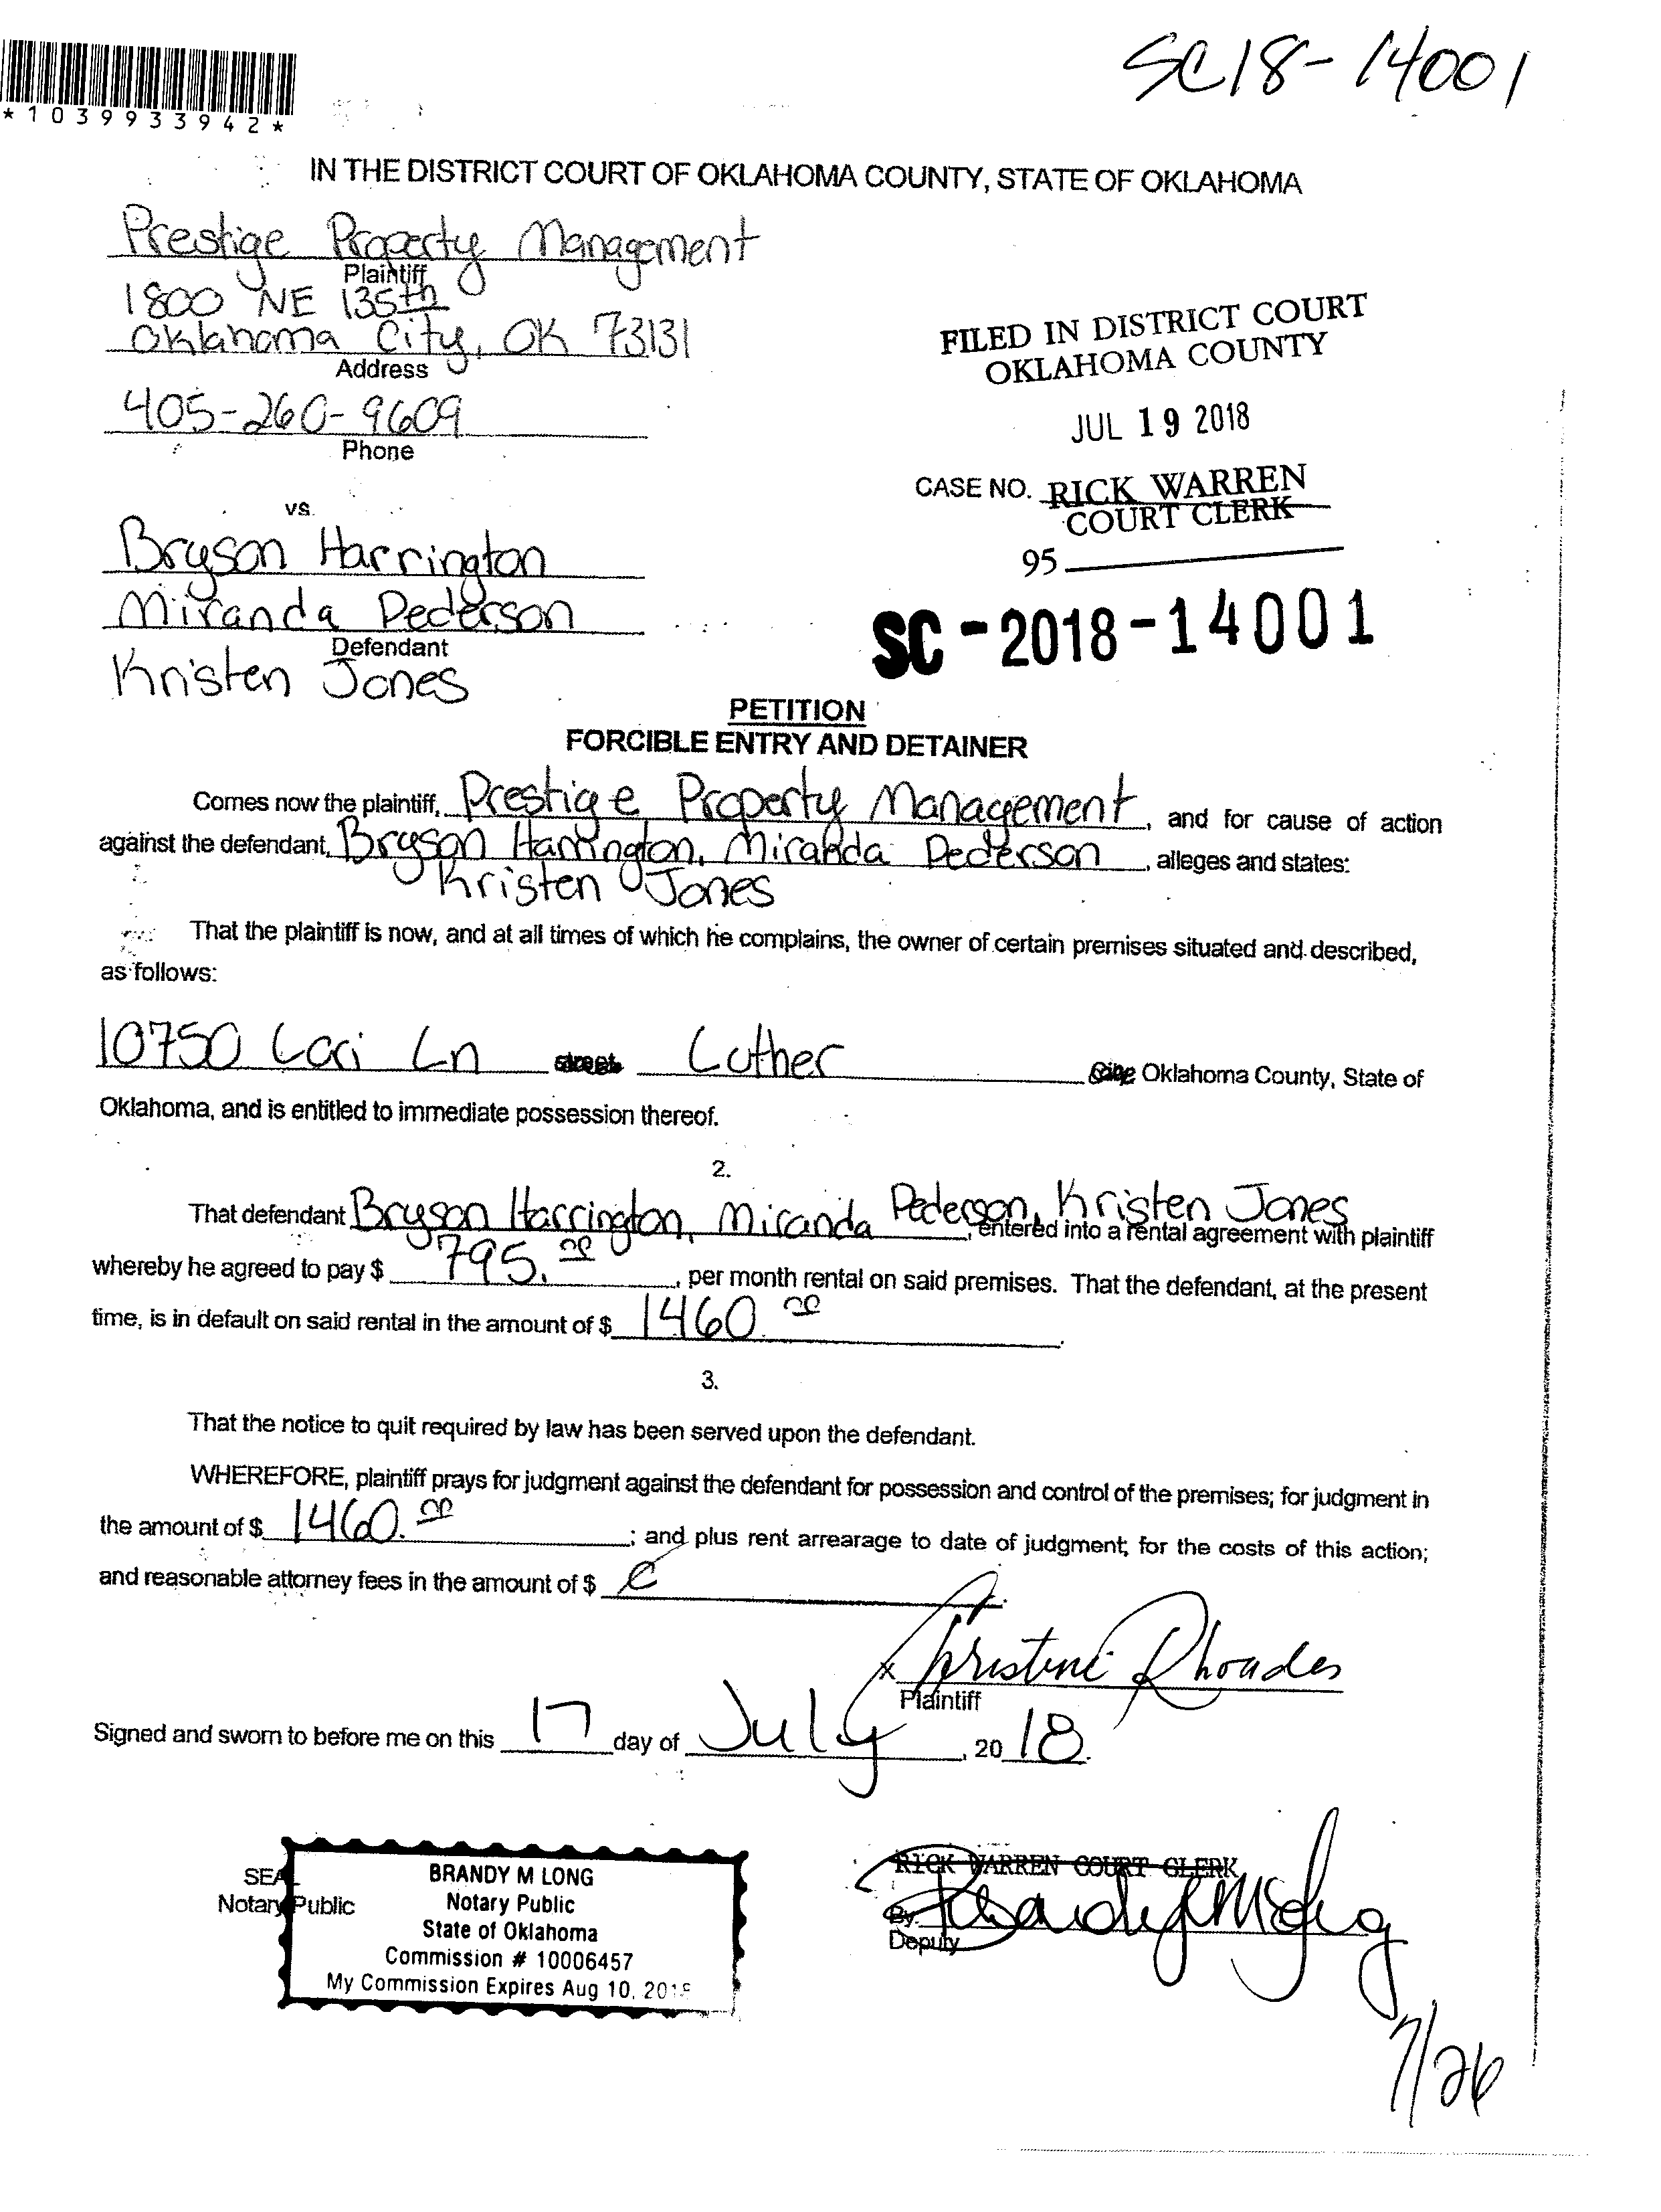 SC18-14001
*1039933942*
IN THE DISTRICT COURT OF OKLAHOMA COUNTY, STATE OF OKLAHOMA
Prestige Property Management
Plaintiff
1800 NE 135th
Oklahoma City, OK 73131
Address
405-260-9609
Phone
FILED IN DISTRICT COURT
OKLAHOMA COUNTY
JUL 19 2018
CASE NO. RICK WARREN
COURT CLERK
95
SC-2018-14001
vs.
Bryson Harrington
Miranda Pederson
Defendant
Kristen Jones
PETITION
FORCIBLE ENTRY AND DETAINER
Comes now the plaintiff, Prestige Property Management, and for cause of action
against the defendant, Bryson Harrington, Miranda Pederson, alleges and states:
Kristen Jones
That the plaintiff is now, and at all times of which he complains, the owner of certain premises situated and described,
as follows:
10750 Lori Ln street Luther City Oklahoma County, State of
Oklahoma, and is entitled to immediate possession thereof.
2.
That defendant Bryson Harrington, Miranda Pederson, Kristen Jones, entered into a rental agreement with plaintiff
whereby he agreed to pay $ 795.00, per month rental on said premises. That the defendant, at the present
time, is in default on said rental in the amount of $ 1460.00.
3.
That the notice to quit required by law has been served upon the defendant.
WHEREFORE, plaintiff prays for judgment against the defendant for possession and control of the premises; for judgment in
the amount of $ 1460.00; and plus rent arrearage to date of judgment; for the costs of this action;
and reasonable attorney fees in the amount of $
x Christine Rhoades
Plaintiff
Signed and sworn to before me on this 17 day of July, 2018.
SEAL
Notary Public
BRANDY M LONG
Notary Public
State of Oklahoma
Commission # 10006457
My Commission Expires Aug 10, 201
RICK WARREN COURT CLERK
By: Brandy M Long
Deputy
7/26